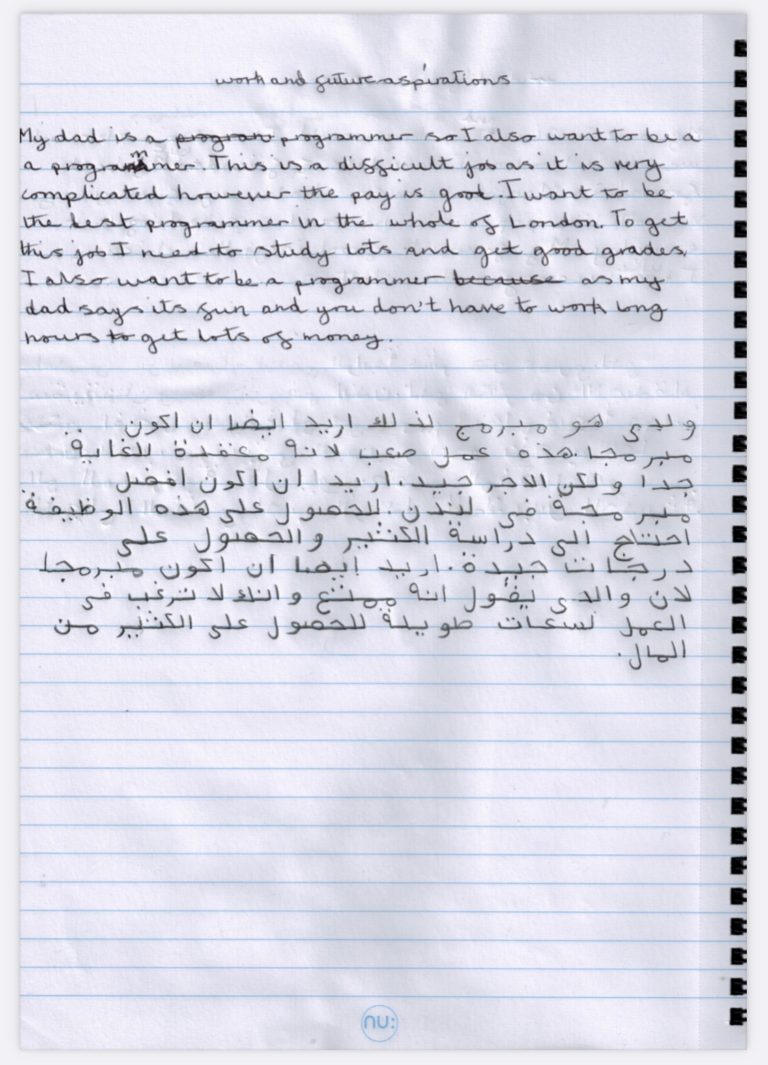 work and future aspirations
My dad is a program programmer so I also want to be a
a programmer. This is a difficult job as it is very
complicated however the pay is good. I want to be
the best programmer in the whole of London. To get
this job I need to study lots and get good grades.
I also want to be a programmer because as my
dad says its fun and you don't have to work long
hours to get lots of money.
ولدي هو مبرمج لذلك اريد ايضا ان اكون
مبرمجا.هذه عمل صعب لانه معقدة للغاية
جدا ولكن الاجر جيد.اريد ان اكون افضل
مبرمجة في لندن.للحصول على هذه الوظيفة
احتاج الى دراسة الكثير والحصول على
درجات جيدة.اريد ايضا ان اكون مبرمجا
لان والدي يقول انه ممتع وانك لا ترغب في
العمل لسعات طويلة للحصول على الكثير من
المال.
nu: